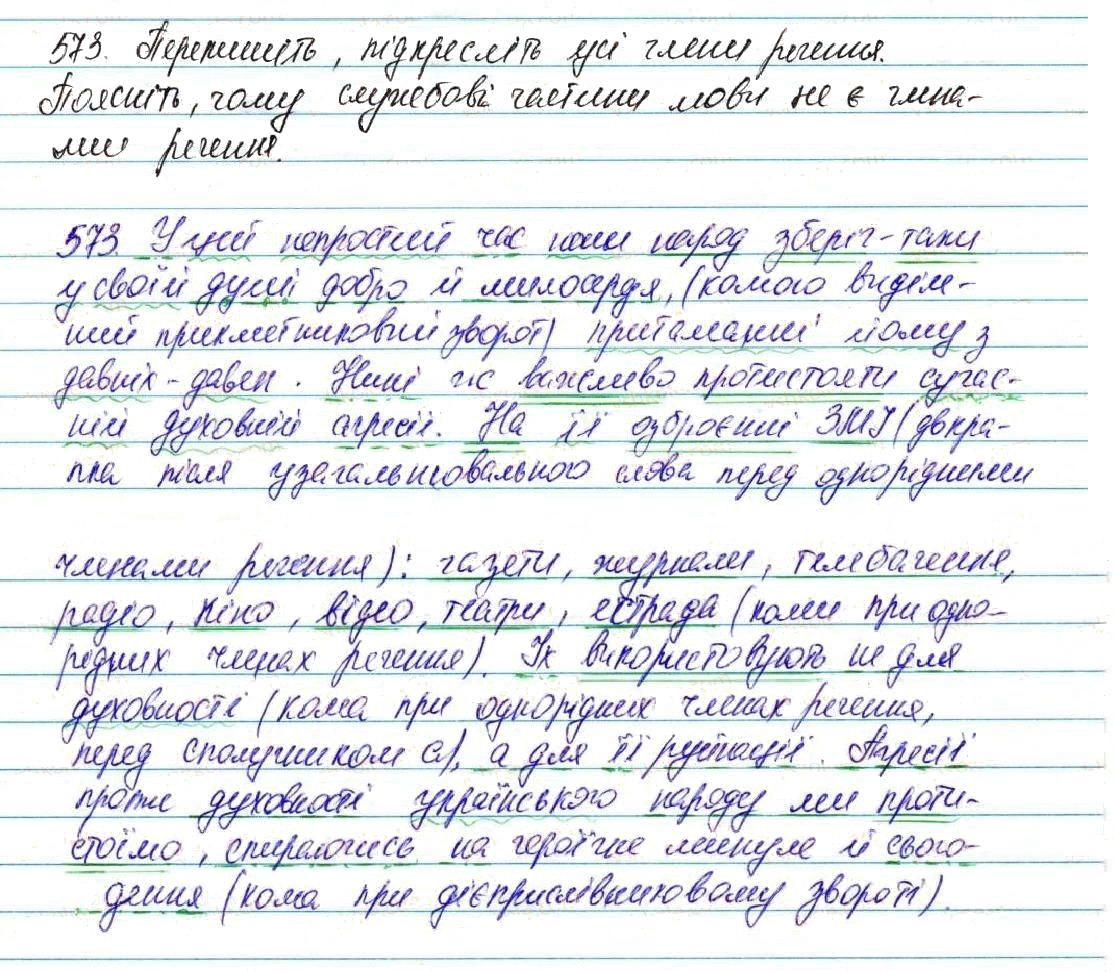 573. Перепишіть, підкресліть усі члени речення.
Поясніть, чому службові частини мови не є члена-
ми речення.
573. У цей непростий час наш народ зберіг-таки
у своїй душі добро й милосердя, (комою виділе-
ний прикметниковий зворот) притаманні йому з
давніх-давен. Нині же важливо протистояти сучас-
ній духовній агресії. На її озброєнні ЗМІ (двокра-
пка після узагальнювального слова перед однорідними
членами речення): газети, журнали, телебачення,
радіо, кіно, відео, театри, естрада (коми при одно-
рідних членах речення). Їх використовують не для
духовності (кома при однорідних членах речення,
перед сполучником а), а для її руйнації. Агресії
проти духовності українського народу ми проти-
стоїмо, спираючись на героїчне минуле й сього-
дення (кома при дієприслівниковому звороті).